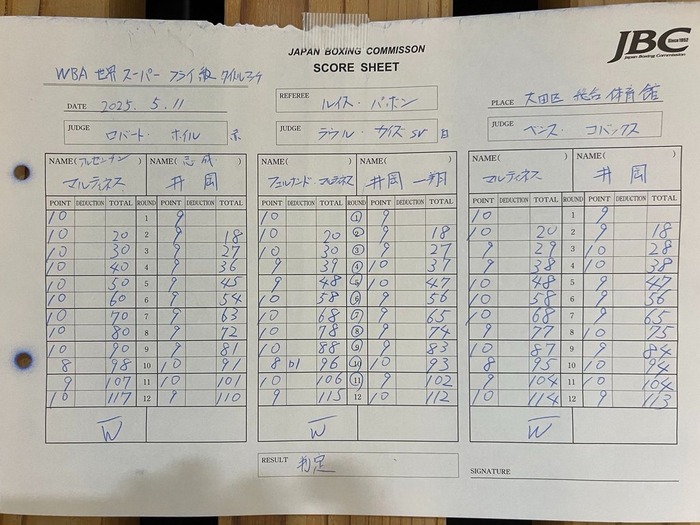 JAPAN BOXING COMMISSON
SCORE SHEET
JBC
Since 1952
Japan Boxing Commission
WBA 世界 スーパー フライ級 タイトルマッチ
DATE 2025. 5. 11
REFEREE ルイス・パボン
PLACE 大田区 総合体育館
JUDGE ロバート・ホイル 赤
JUDGE ラウル・カイズSr 白
JUDGE ベンス・コバックス
NAME(アルゼンチン) NAME(志成) NAME( ) NAME( ) NAME( ) NAME( )
マルティネス 井岡 フェルナンド・マルティネス 井岡 一翔 マルティネス 井岡
POINT DEDUCTION TOTAL ROUND POINT DEDUCTION TOTAL POINT DEDUCTION TOTAL ROUND POINT DEDUCTION TOTAL POINT DEDUCTION TOTAL ROUND POINT DEDUCTION TOTAL
10 1 9 10 1 9 10 1 9
10 20 2 9 18 10 20 2 9 18 10 20 2 9 18
10 30 3 9 27 10 30 3 9 27 9 29 3 10 28
10 40 4 9 36 9 39 4 10 37 9 38 4 10 38
10 50 5 9 45 9 48 5 10 47 10 48 5 9 47
10 60 6 9 54 10 58 6 9 56 10 58 6 9 56
10 70 7 9 63 10 68 7 9 65 10 68 7 9 65
10 80 8 9 72 10 78 8 9 74 9 77 8 10 75
10 90 9 9 81 10 88 9 9 83 10 87 9 9 84
8 98 10 10 91 8 96 10 10 93 8 95 10 10 94
9 107 11 10 101 10 106 11 9 102 9 104 11 10 104
10 117 12 9 110 9 115 12 10 112 10 114 12 9 113
W W W
RESULT 判定
SIGNATURE